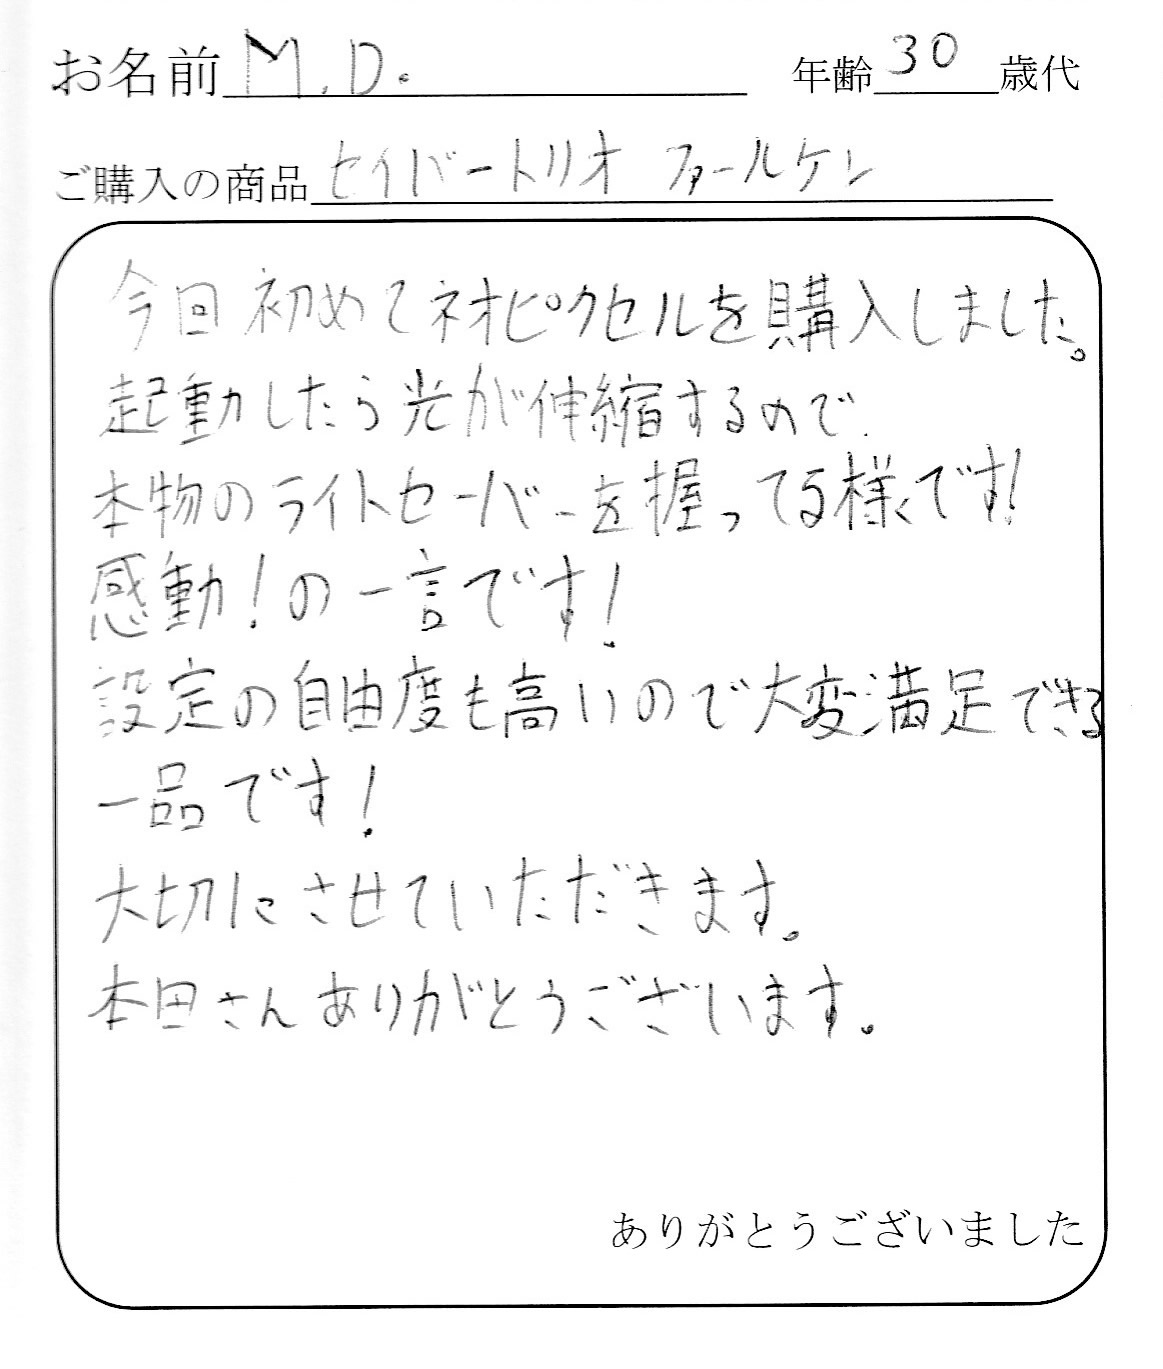 お名前 M.D. 年齢 30 歳代
ご購入の商品 セイバートリオ ファールケン
今回初めてネオピクセルを購入しました。
起動したら光が伸縮するので
本物のライトセーバーを握ってる様です!
感動!の一言です!
設定の自由度も高いので大変満足できる
一品です!
大切にさせていただきます。
本田さんありがとうございます。
ありがとうございました